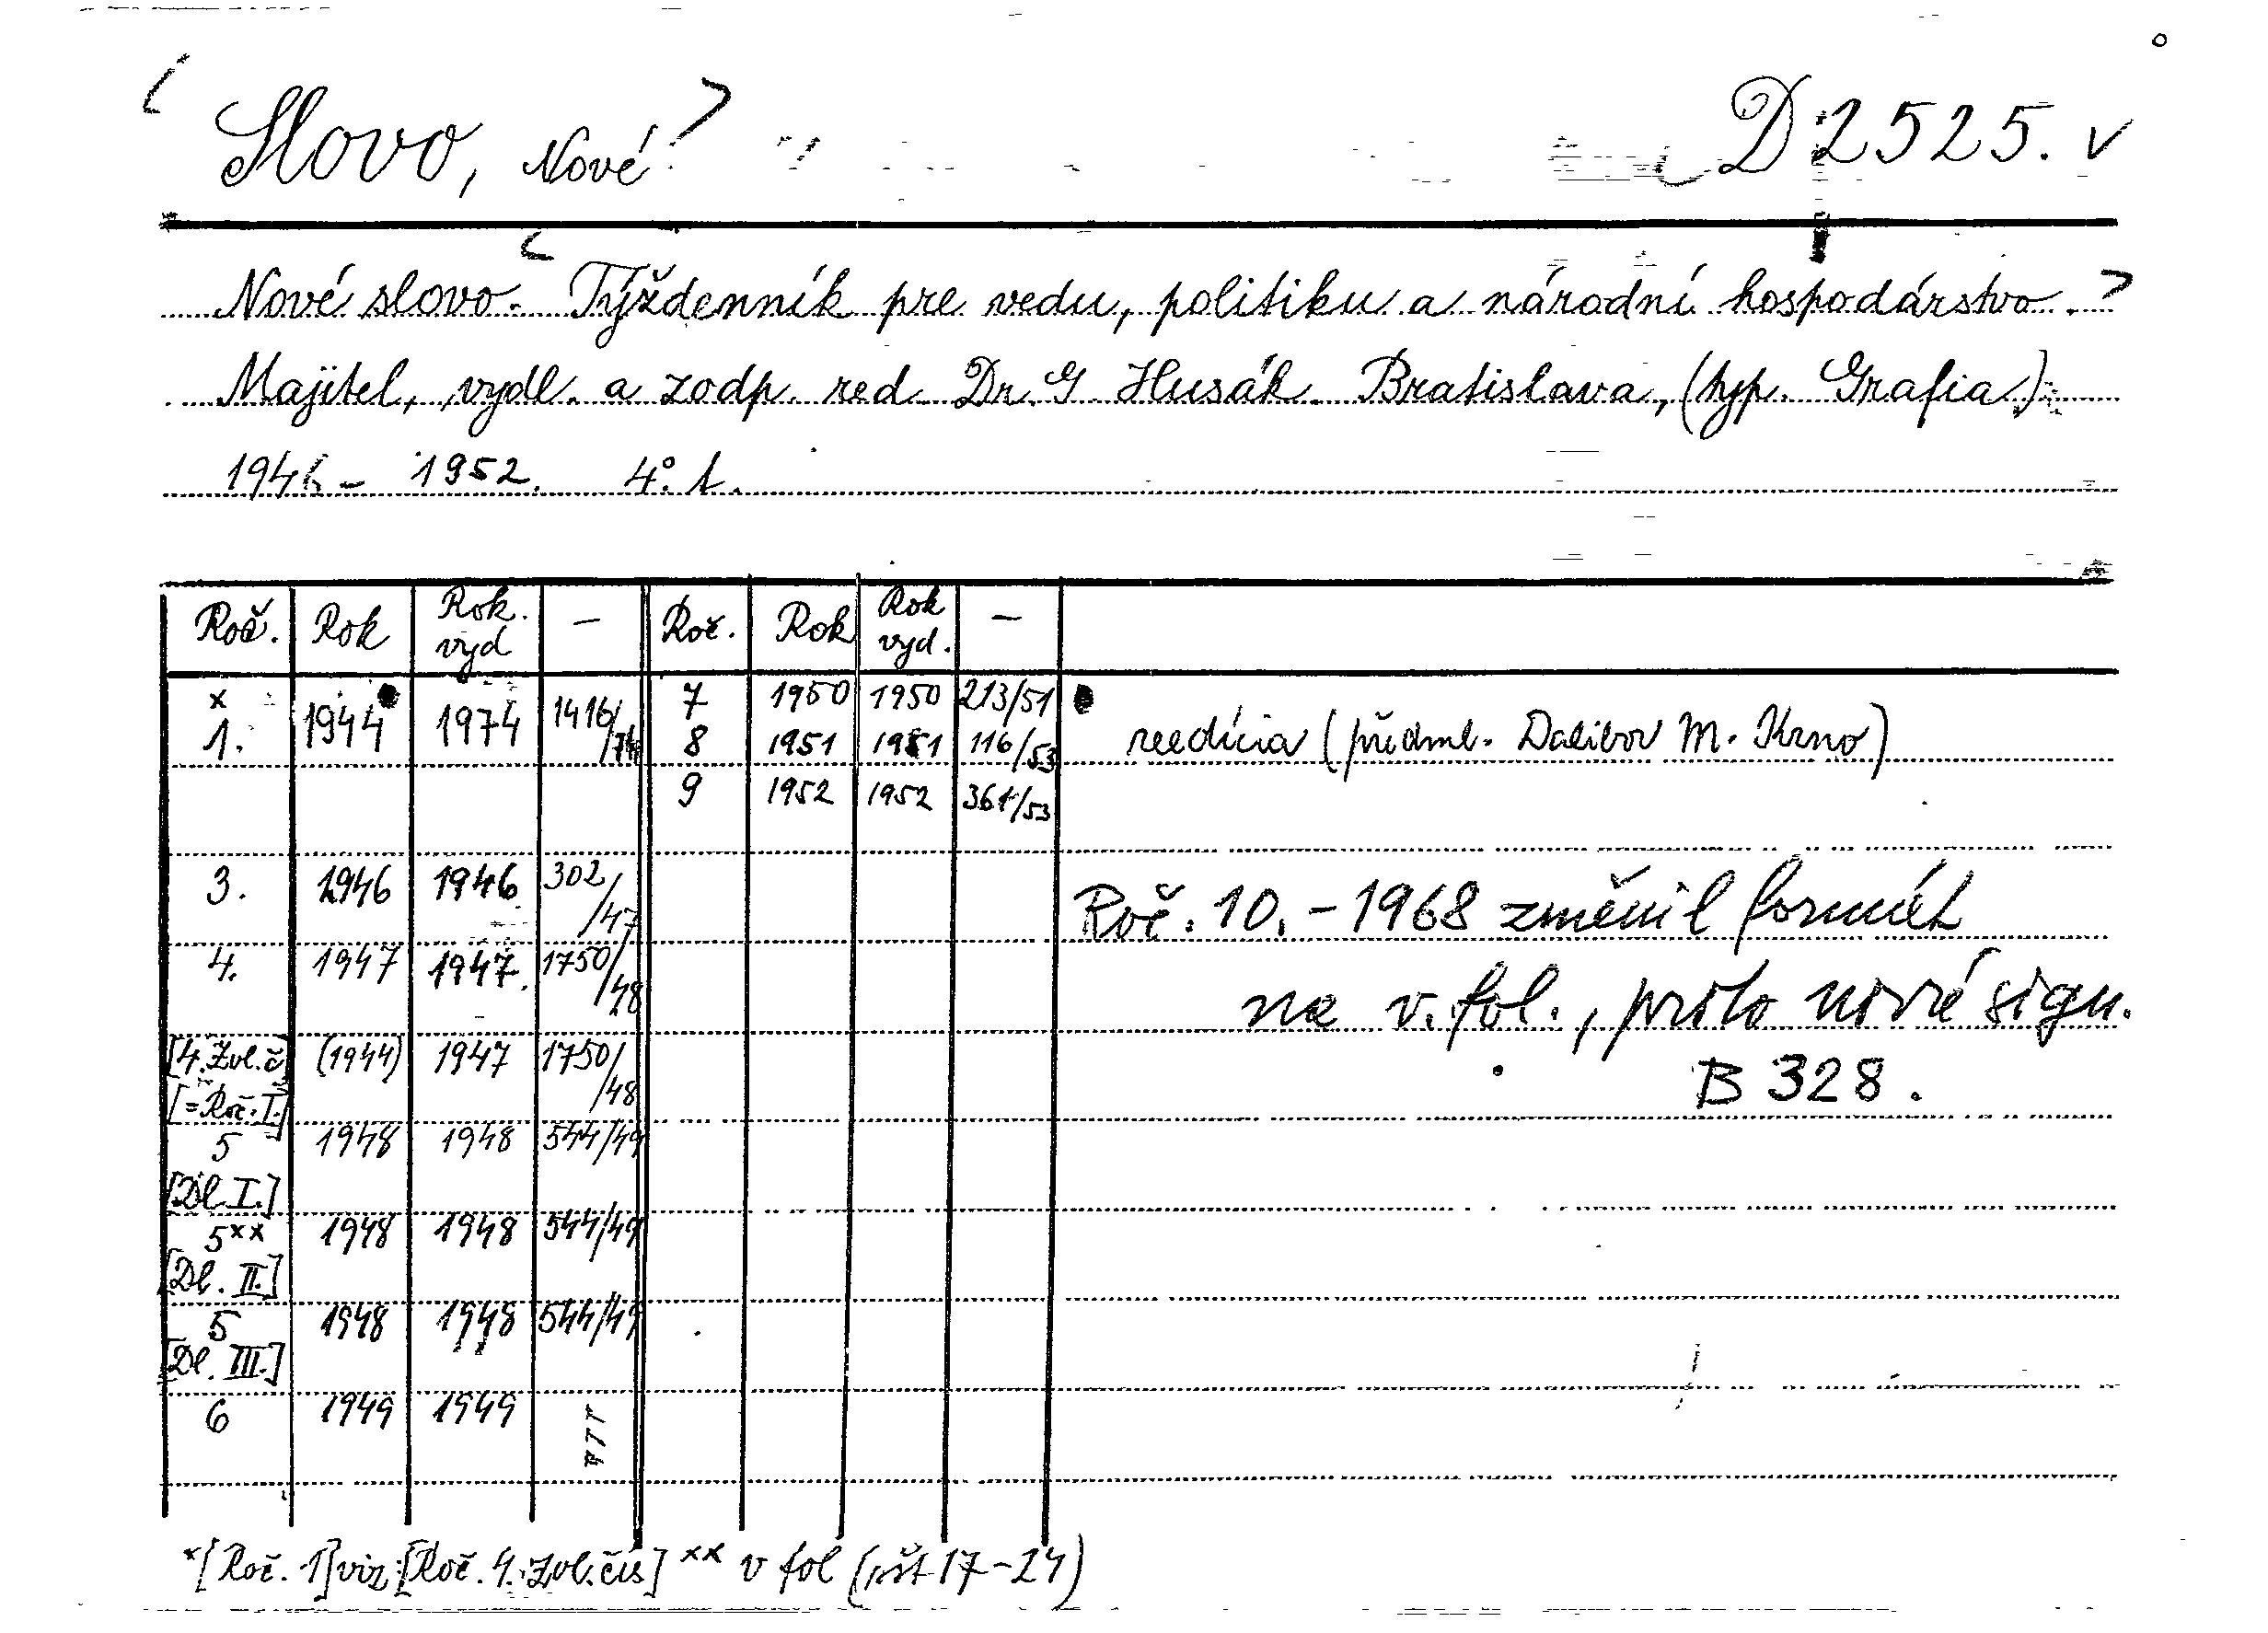 Slovo, Nové D 2525. v
Nové slovo. Týždenník pre vedu, politiku a národní hospodárstvo.
Majitel, vydl. a zodp. red. Dr. G Husák. Bratislava, (typ. Grafia)
1946 - 1952. 4°.
Roč. Rok Rok. vyd — Roč. Rok Rok vyd. —
x 1. 1944 1974 1416/74 7 1950 1950 213/51
8 1951 1951 116/53 reedícia (předml. Dalibor M. Krno)
9 1952 1952 361/53
3. 1946 1946 302/47 Roč. 10. - 1968 změnil formát
4. 1947 1947. 1750/48 na v. fol., proto nové sign.
[4. Zvl. č] (1944) 1947 1750/48 B 328.
[= Roč. I.]
5 1948 1948 544/49
[Dl. I.]
5xx 1948 1948 544/49
[Dl. II.]
5 1948 1948 544/49
[Dl. III.]
6 1949 1949
x[Roč. 1] viz [Roč. 4. zvl. čís] xx v fol (čšt 17-24)